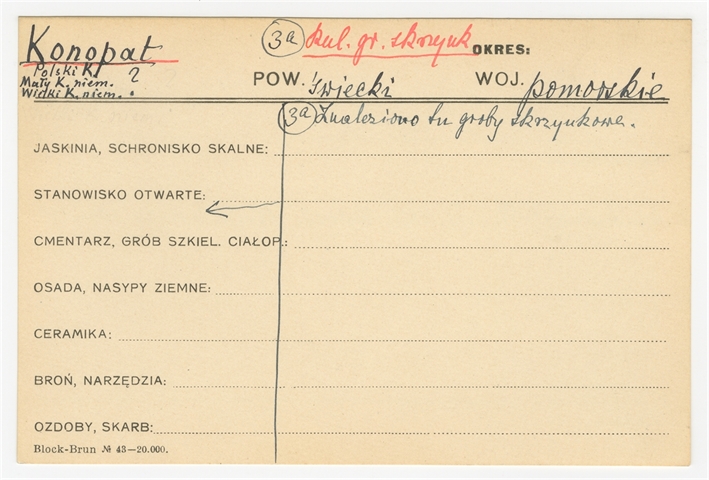 Konopat
(3a) kul. gr. skrzynk OKRES:
Polski K.
Mały K. niem. ?
Wielki K. niem.
POW. świecki WOJ. pomorskie
(3a) Znaleziono tu groby skrzynkowe.
JASKINIA, SCHRONISKO SKALNE:
STANOWISKO OTWARTE:
CMENTARZ, GRÓB SZKIEL. CIAŁOP.:
OSADA, NASYPY ZIEMNE:
CERAMIKA:
BROŃ, NARZĘDZIA:
OZDOBY, SKARB:
Block-Brun № 43—20.000.